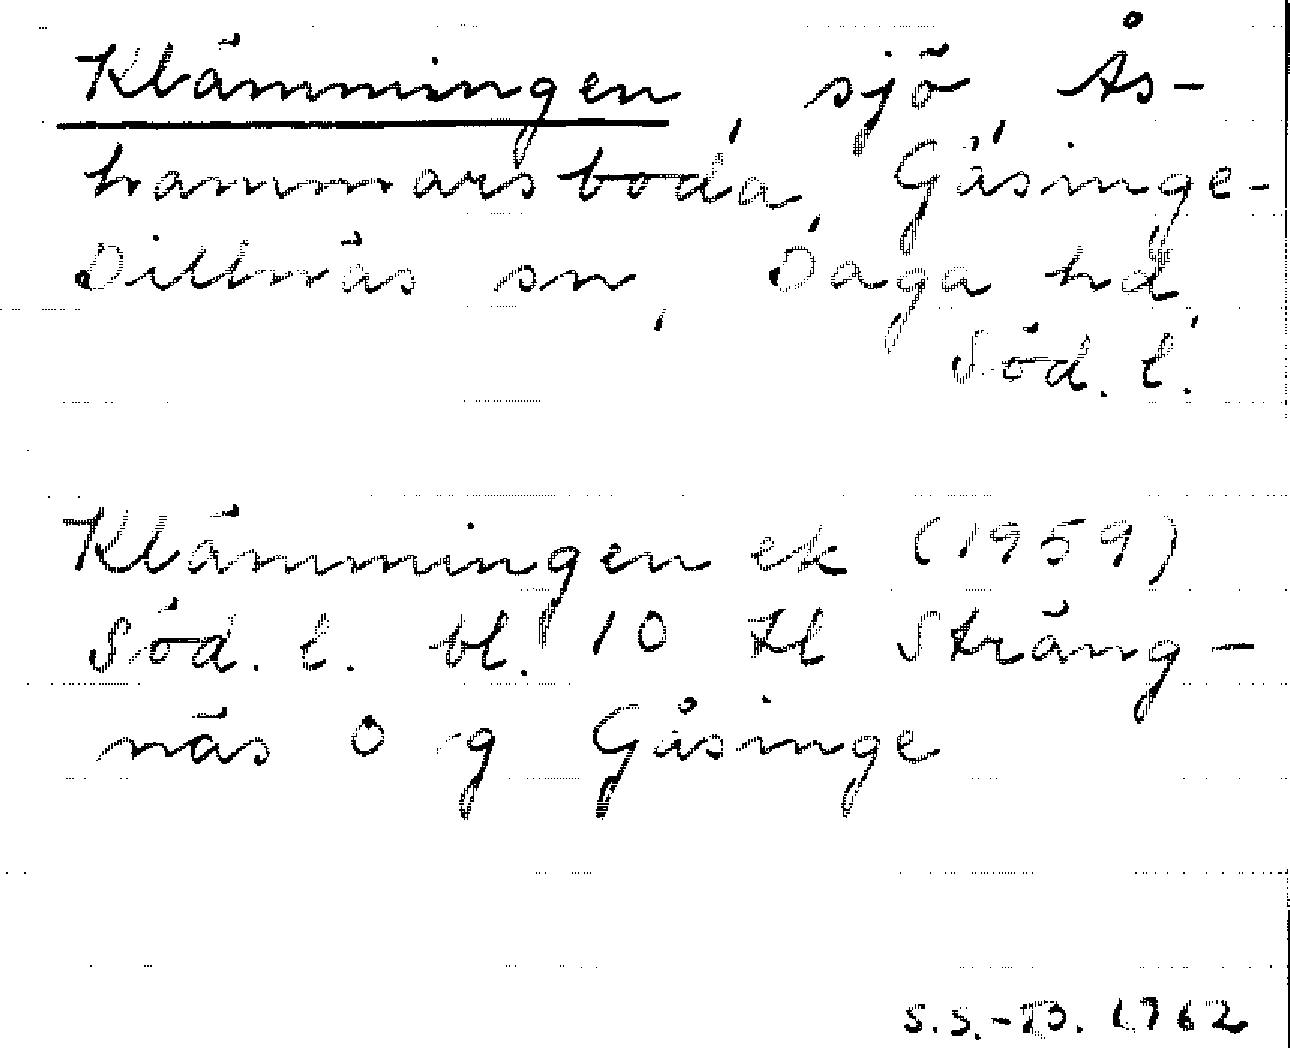 Klämmingen, sjö, Ås-
hammarsboda, Gåsinge-
Dillnäs sn, Daga hd,
Söd. l.
Klämmingen ek (1959)
Söd. l. bl. 10 tl Sträng-
näs O g Gåsinge
S.S.-B. 1962